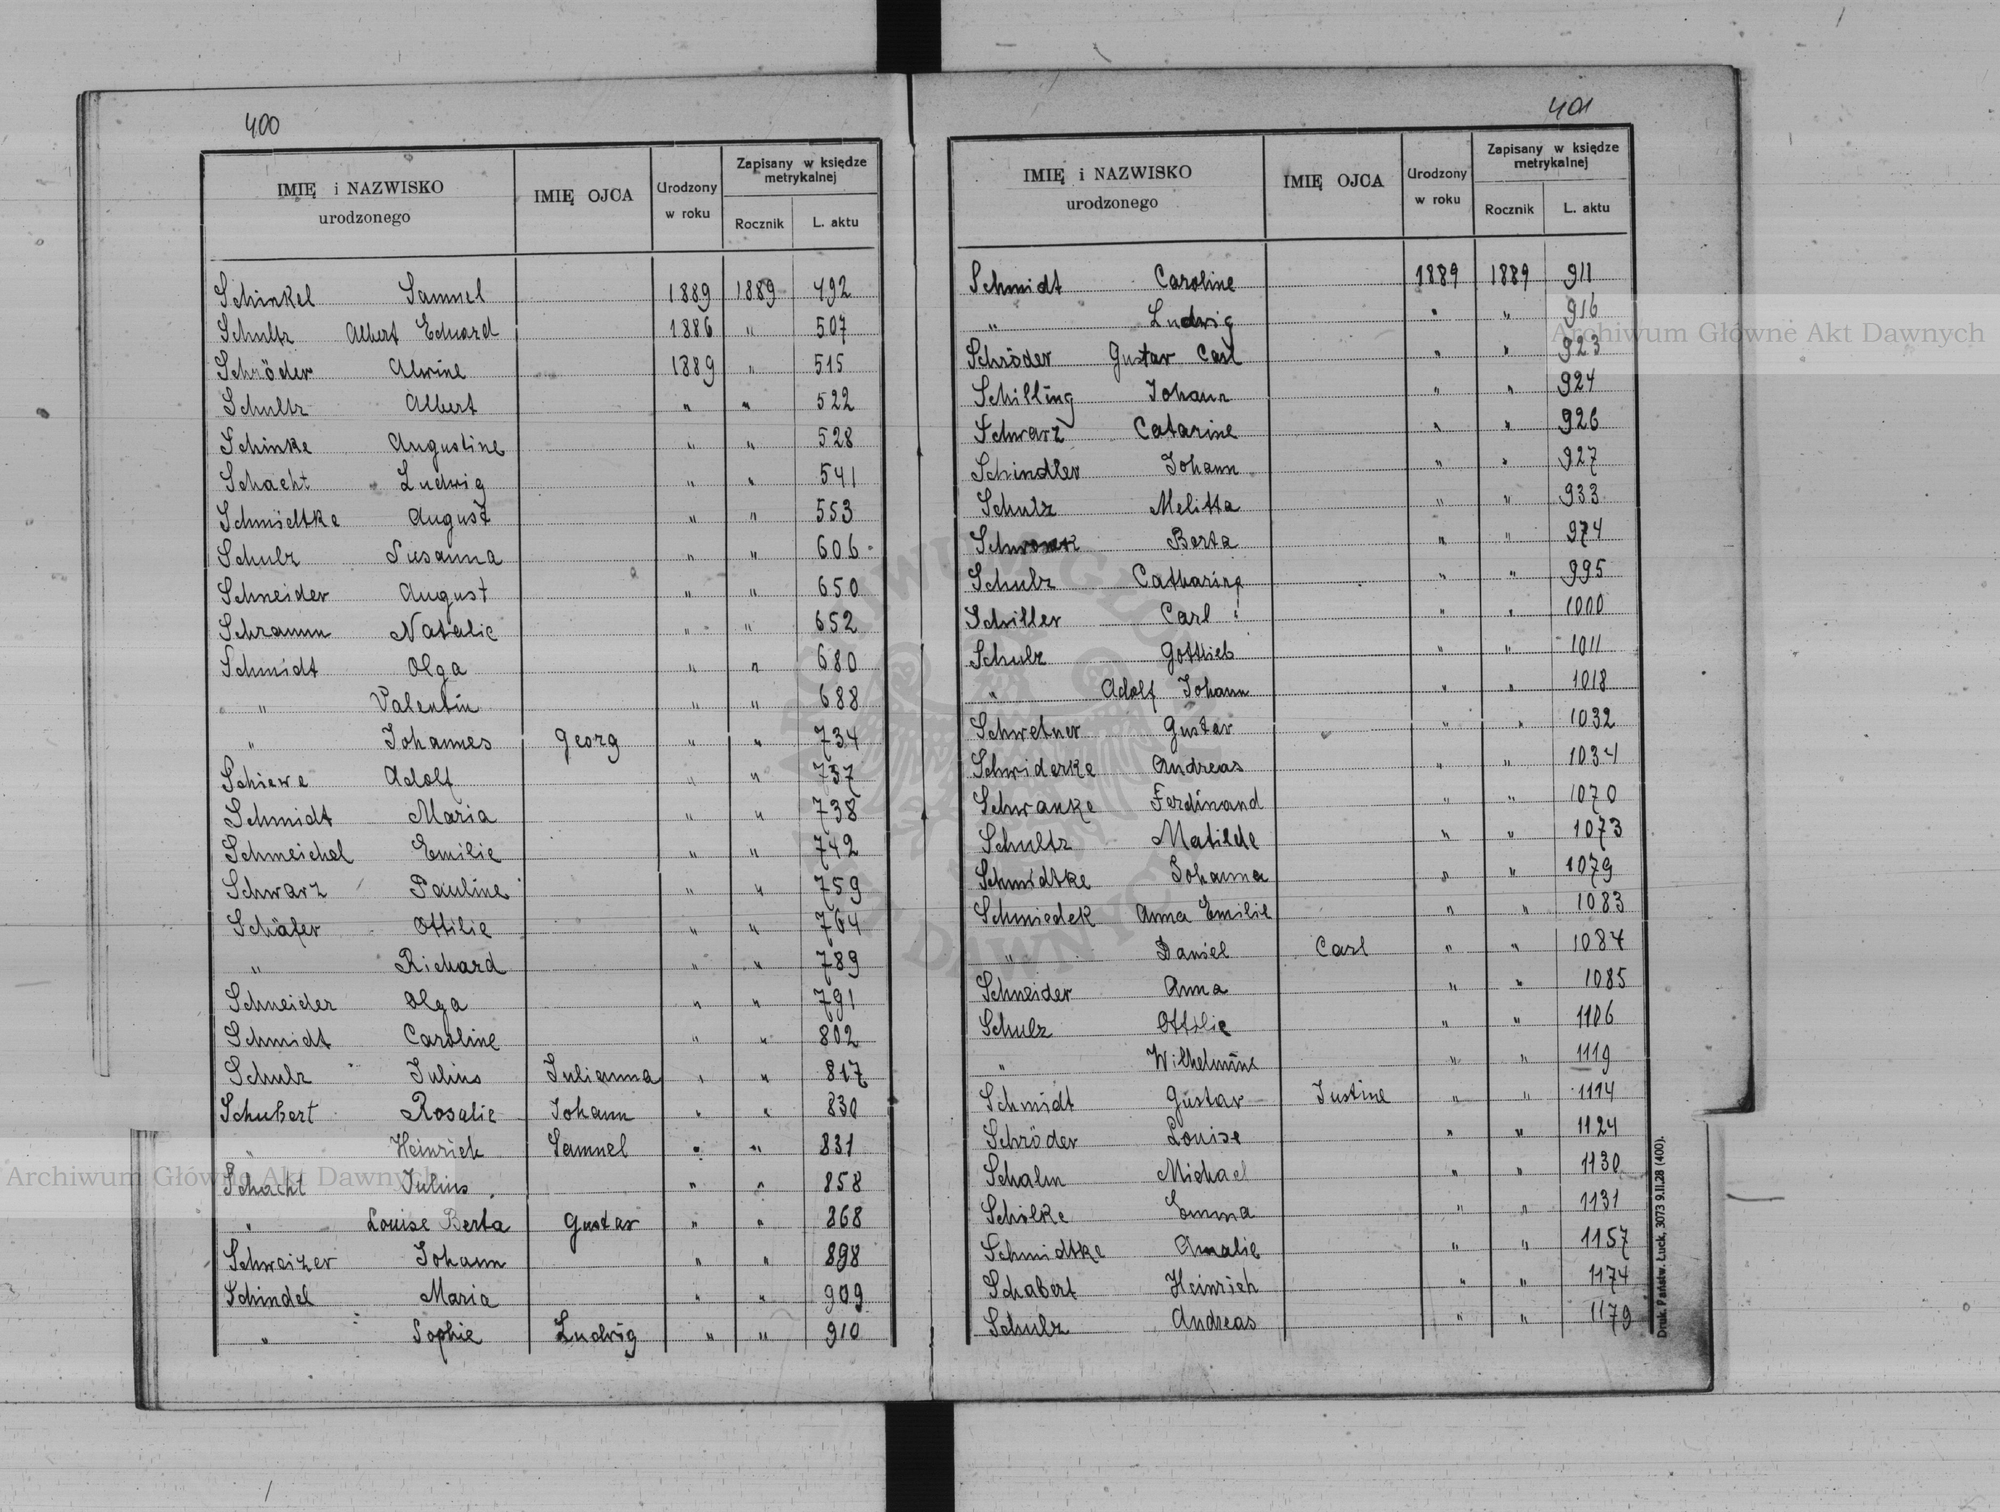 400
IMIĘ i NAZWISKO urodzonego IMIĘ OJCA Urodzony w roku Zapisany w księdze metrykalnej Rocznik L. aktu
Schinkel Samuel 1889 1889 492
Schultz Albert Eduard 1886 " 507
Schröder Alwine 1889 " 515
Schultz Albert " " 522
Schinke Augustine " " 528
Schacht Ludwig " " 541
Schmidtke August " " 553
Schulz Susanna " " 606
Schneider August " " 650
Schramm Natalie " " 652
Schmidt Olga " " 680
" Valentin " " 688
" Johannes Georg " " 734
Schiewe Adolf " " 737
Schmidt Maria " " 738
Schmeichel Emilie " " 742
Schwarz Pauline " " 759
Schäfer Ottilie " " 764
" Richard " " 789
Schneider Olga " " 791
Schmidt Caroline " " 802
Schulz Julius Julianna " " 817
Schubert Rosalie Johann " " 830
" Heinrich Samuel " " 831
Schacht Julius " " 858
" Louise Berta Gustav " " 868
Schweizer Johann " " 898
Schindel Maria " " 909
" Sophie Ludwig " " 910
401
IMIĘ i NAZWISKO urodzonego IMIĘ OJCA Urodzony w roku Zapisany w księdze metrykalnej Rocznik L. aktu
Schmidt Caroline 1889 1889 911
" Ludwig " " 916
Schröder Gustav Carl " " 923
Schilling Johann " " 924
Schwarz Catarine " " 926
Schindler Johann " " 927
Schulz Melitta " " 933
Berta " " 974
Schulz Catharine " " 995
Schiller Carl " " 1000
Schulz Gottlieb " " 1011
" Adolf Johann " " 1018
Schwetner Gustav " " 1032
Schwiderke Andreas " " 1034
Schwanke Ferdinand " " 1070
Schultz Matilde " " 1073
Schmidtke Johanna " " 1079
Schmiedek Anna Emilie " " 1083
" Daniel Carl " " 1084
Schneider Anna " " 1085
Schulz Ottilie " " 1106
" Wilhelmine " " 1119
Schmidt Gustav Justine " " 1114
Schröder Louise " " 1124
Schalm Michael " " 1130
Schölke Emma " " 1131
Schmidtke Amalie " " 1157
Schabert Heinrich " " 1174
Schulz Andreas " " 1179
Druk. Państw. Łuck, 3073 9.II.28 (400).
Archiwum Główne Akt Dawnych
Archiwum Główne Akt Dawnych
ARCHIWUM GŁÓWNE AKT DAWNYCH